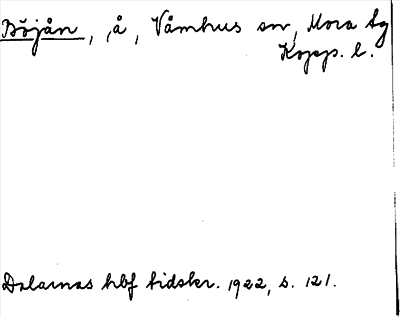 Böjån, , å, Våmhus sn, Mora tg
Kopp. l.
Dalarnas hbf tidskr. 1922, s. 121.